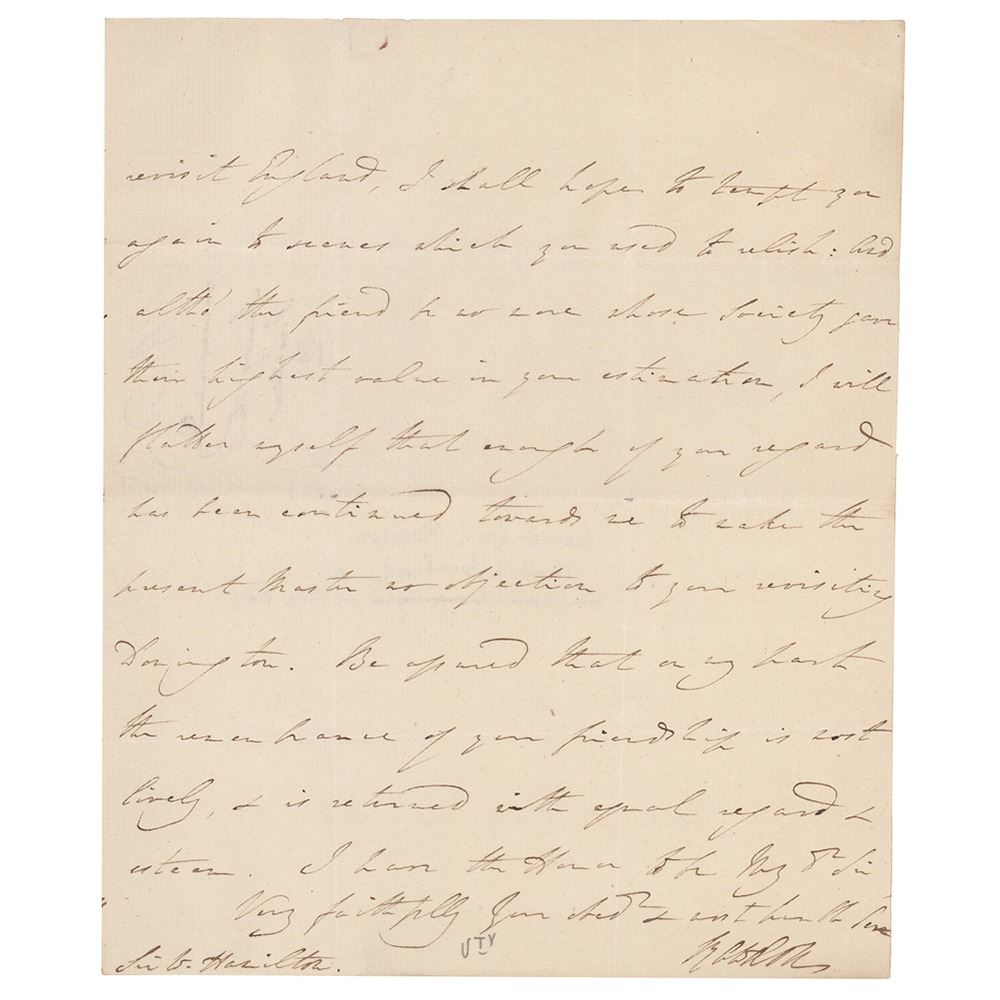 revisit England, I shall hope to tempt you
again to scenes which you used to relish: And
altho' the friend be no more whose Society gave
their highest value in your estimation, I will
flatter myself that enough of your regard
has been continued towards me to make the
present Master no objection to your revisiting
Donington. Be assured that on my part
the remembrance of your friendship is most
lively, & is returned with equal regard &
esteem. I have the Honor to be My Dr Sir
Very faithfully Your obedt & most humble Serv
Rawdon
Sir W. Hamilton.